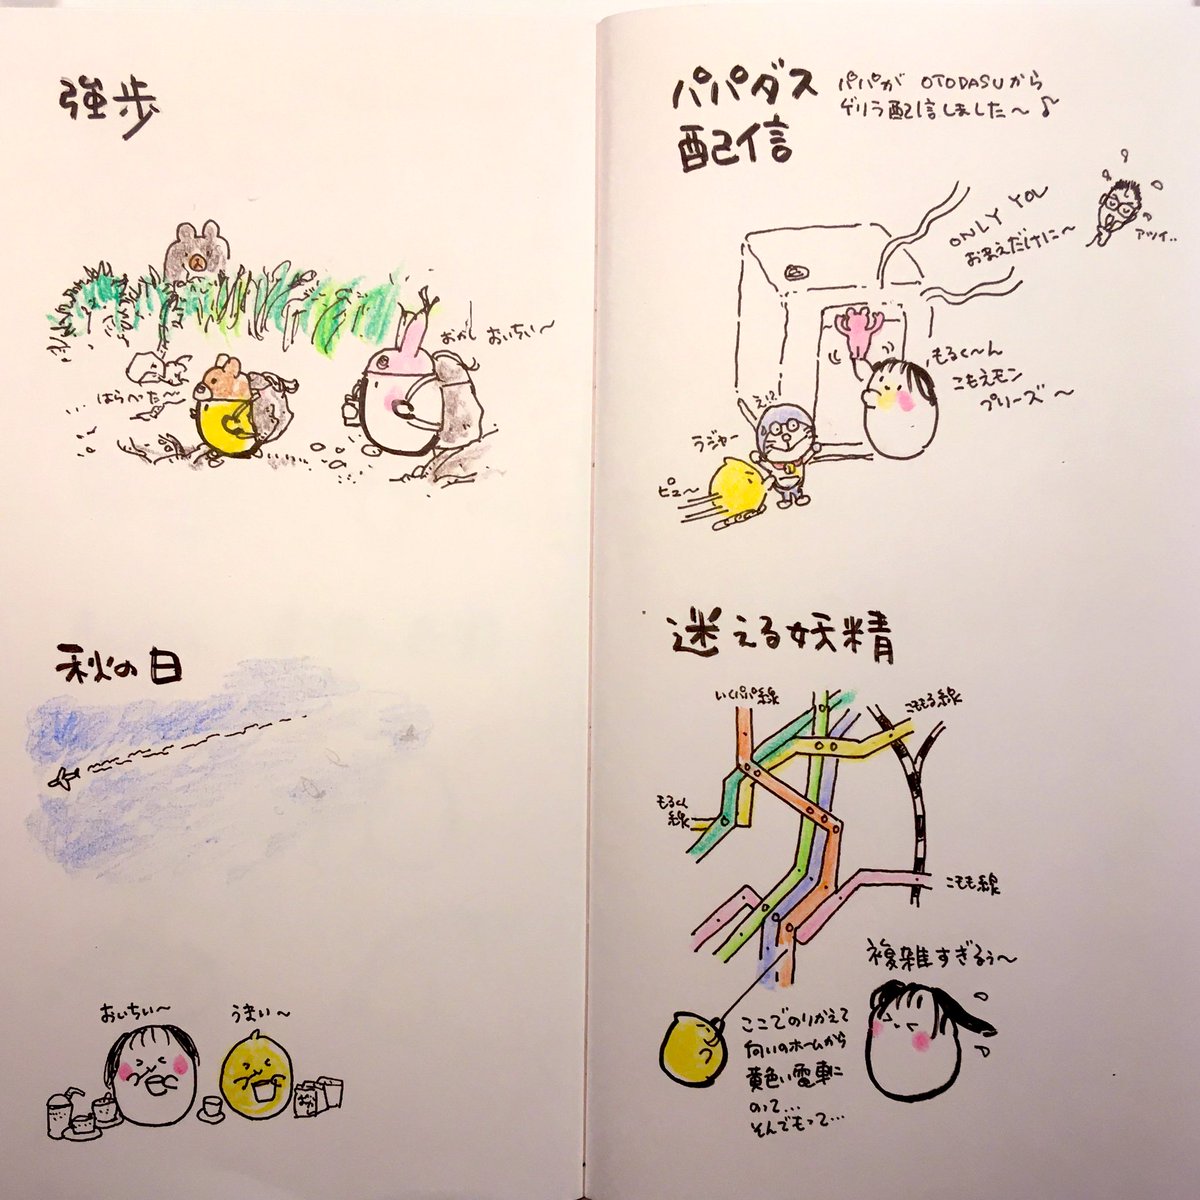 強歩
おかし おいちい〜
はらへた〜
秋の日
おいちい〜
うまい〜
パパダス
配信
パパが OTODASUから
ゲリラ配信しました〜♪
ONLY YOU
おまえだけに〜
アツイ..
もるく〜ん
こもえモン
プリーズ〜
えっ?!
ラジャー
ピュ〜
迷える妖精
いくパパ線
こももる線
もるくん
線
こもも線
複雑すぎるぅ〜
ここでのりかえて
向いのホームから
黄色い電車に
のって...
そんでもって...